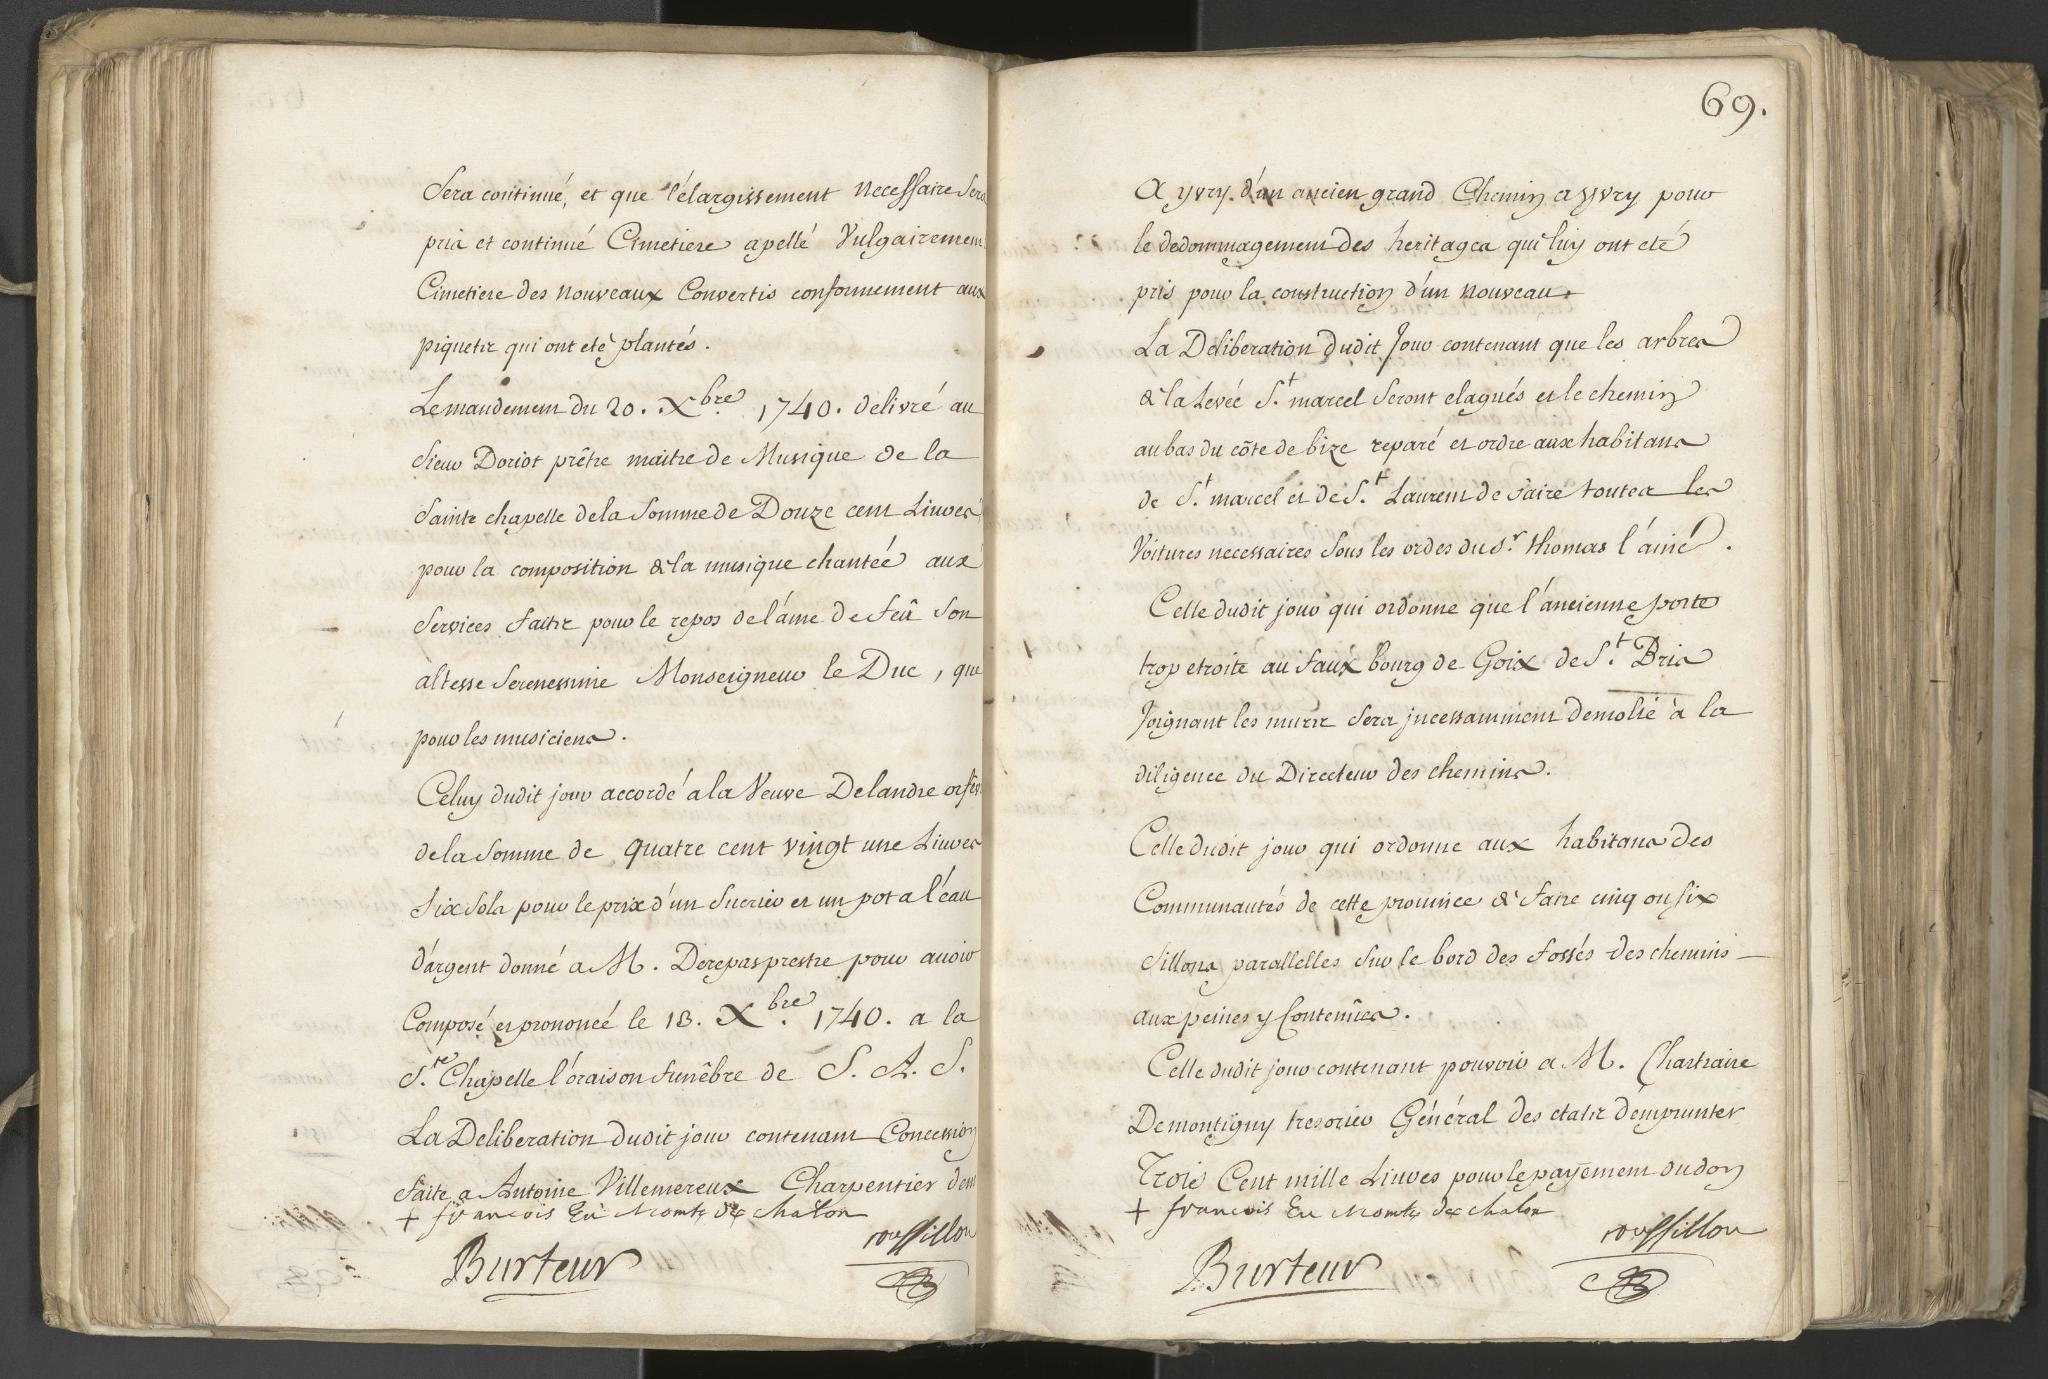 Sera continué, et que l'élargissement necessaire sera
pris et continué Cimetiere apellé Vulgairement
Cimetiere des nouveaux Convertis conformement aux
piquets qui ont eté plantés.
Le mandement du 20. Xbre 1740. delivré au
Sieur Doriot prêtre maitre de Musique de la
Sainte chapelle de la Somme de Douze cent Livres
pour la composition de la musique chantée aux
Services faits pour le repos de l'ame de feû Son
altesse Serenessime Monseigneur le Duc, que
pour les musiciens.
Celuy dudit jour accordé a la Veuve Delandre orfev
de la Somme de quatre cent vingt une Livres
Six Sols pour le prix d'un Sucrier et un pot a l'éau
d'argent donné a M. Derepas prestre pour avoir
Composé et prononcé le 18. Xbre 1740. a la
S.te Chapelle l'oraison funêbre de S. A. S.
La Deliberation dudit jour contenant Concession
faite a Antoine Villemereux Charpentier dem
+ françois Eu Momte de Chalon
Burteur
roussillon
69.
A yvry. d'un ancien grand Chemin a yvry pour
le dedommagement des heritages qui luy ont eté
pris pour la construction d'un nouveau.
La Deliberation dudit Jour contenant que les arbres
de la Levée S.t marcel Seront elagués et le chemin
au bas du côte de bize reparé et ordre aux habitans
de S.t marcel et de S.t Laurent de faire toutes les
Voitures necessaires Sous les ordes du S.r thomas l'ainé.
Celle dudit jour qui ordonne que l'ancienne porte
trop etroite au faux bourg de Goix de S.t Bris
Joignant les murs Sera jncessamment demolie à la
diligence du Directeur des chemins.
Celle dudit jour qui ordonne aux habitans des
Communautés de cette province de faire cinq ou six
Sillons parallelles Sur le bord des fossés des chemins
aux peines y Contenües.
Celle dudit jour contenant pouvoir a M. Chartraire
De montigny tresorier Général des etats d'emprunter
Trois Cent mille Livres pour le payement du don
+ françois Eu Momte de Chalon
Burteur
roussillon